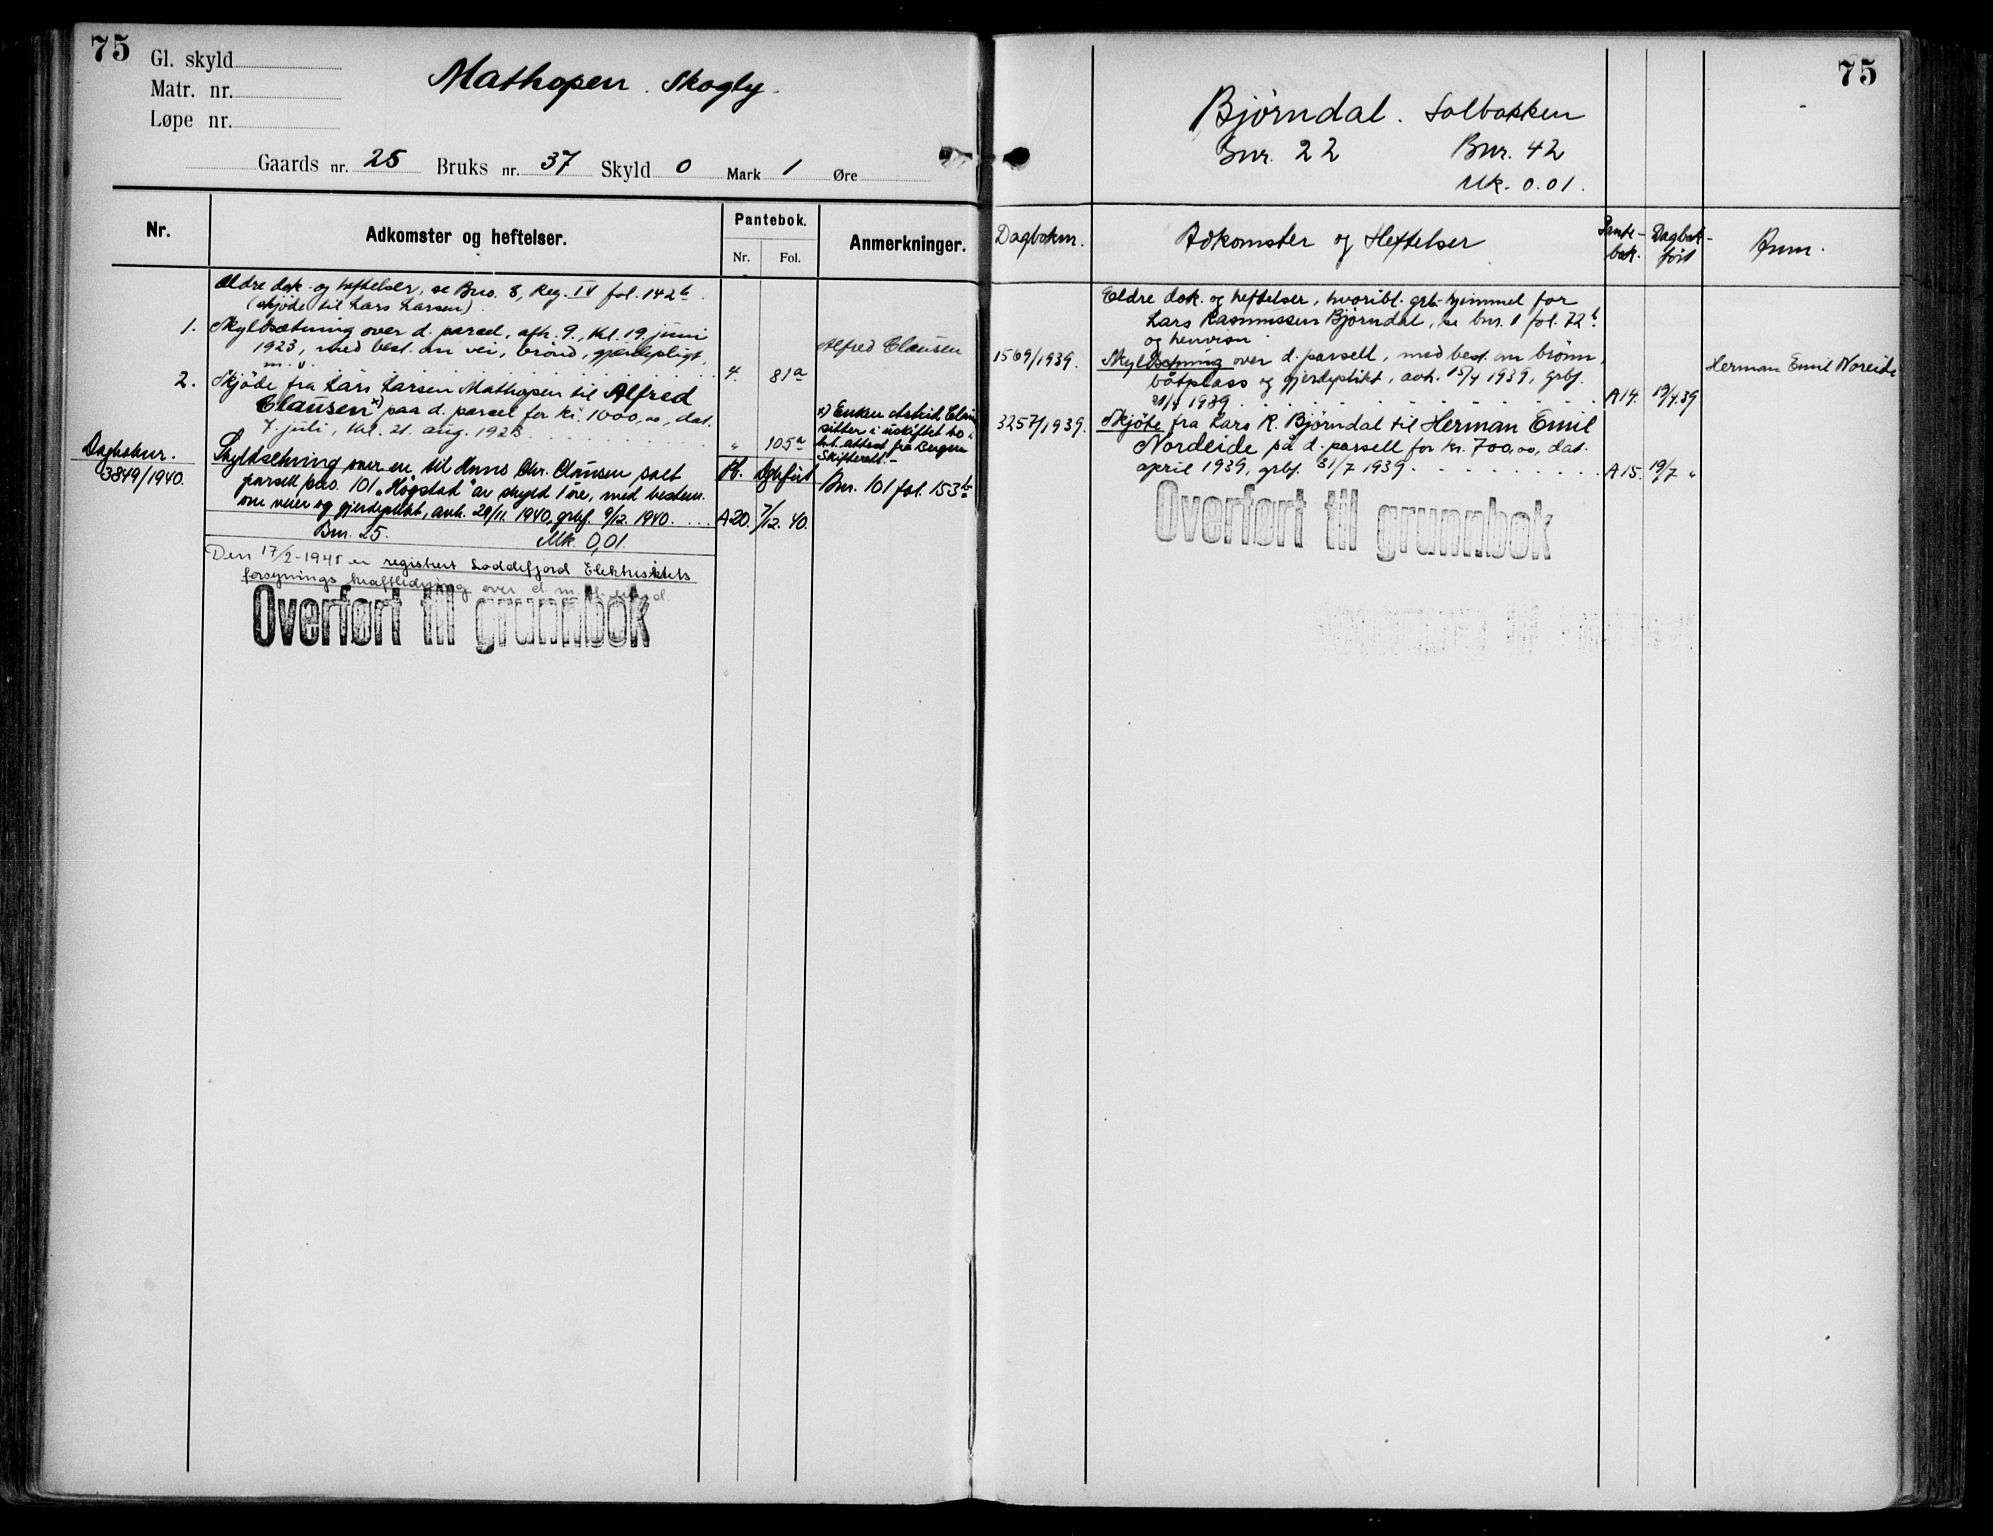 75
Gl. skyld
Matr. nr.
Løpe nr.
Mathopen. Skogly.
Gaards nr. 25 Bruks nr. 37 Skyld 0 Mark 1 Øre
Nr.
Adkomster og hefteiser.
Pantebok.
Nr. Fol.
Anmerkninger.
Ældre dok. og heftelser, se Bno. 8, Reg. IV fol. 142b.
(skjöde til Lars Larsen).
1. Skyldsætning over d. parcel, afh. 9., tkl. 19 juni
1923, med best. om vei, brönd, gjerdepligt,
m. v. 4. 81a
Alfred Clausen
2. Skjöde fra Lars Larsen Mathopen til Alfred
Clausen x) paa d. parcel for kr. 1000,00, dat.
7. juli, tkl. 21. aug. 1923 " 105a
x) Enken Astrid Clausen
sitter i uskiftet bo i
h.t. attest fra Bergen
Skifterett.-
Dagboknr.
3849/1940.
Skyldsetning over en til Hans Chr. Clausen solt
parsell bno. 101 „Högstad" av skyld 1 öre, med bestem.
om veier og gjerdeplikt, avh. 29/11 1940, grbf. 9/12 1940.
Pb. Dgbfört
A20. 7/12. 40.
Bnr. 101 fol. 153b
Bnr. 25. Mk. 0,01.
Den 17/2-1945 er registrert Loddefjord Elektrisitets
forsynings kraftledning over d. m. fl.
Overført til grunnbok
75
Bjørndal. Solbakken
Gnr. 22 Bnr. 42
Mk. 0.01.
Dagboknr.
Adkomster og Heftelser
Pante-
bok.
Dagbok-
fört
Anm.
Eldre dok. og heftelser, hvoribl. grb. hjimmel for
Lars Rasmussen Bjørndal, se bnr. 1 fol. 72b
og henvisn.
1569/1939. Skyldsetning over d. parsell, med best. om brønn,
båtplass og gjerdeplikt, avh. 15/4 1939, grbf.
21/4 1939 A14. 19/4.39
Herman Emil Noreide
3257/1939. Skjöte fra Lars R. Bjørndal til Herman Emil
Nordeide på d. parsell for kr. 700,00, dat.
april 1939, grbf. 31/7 1939. A15. 19/7 "
Overført til grunnbok